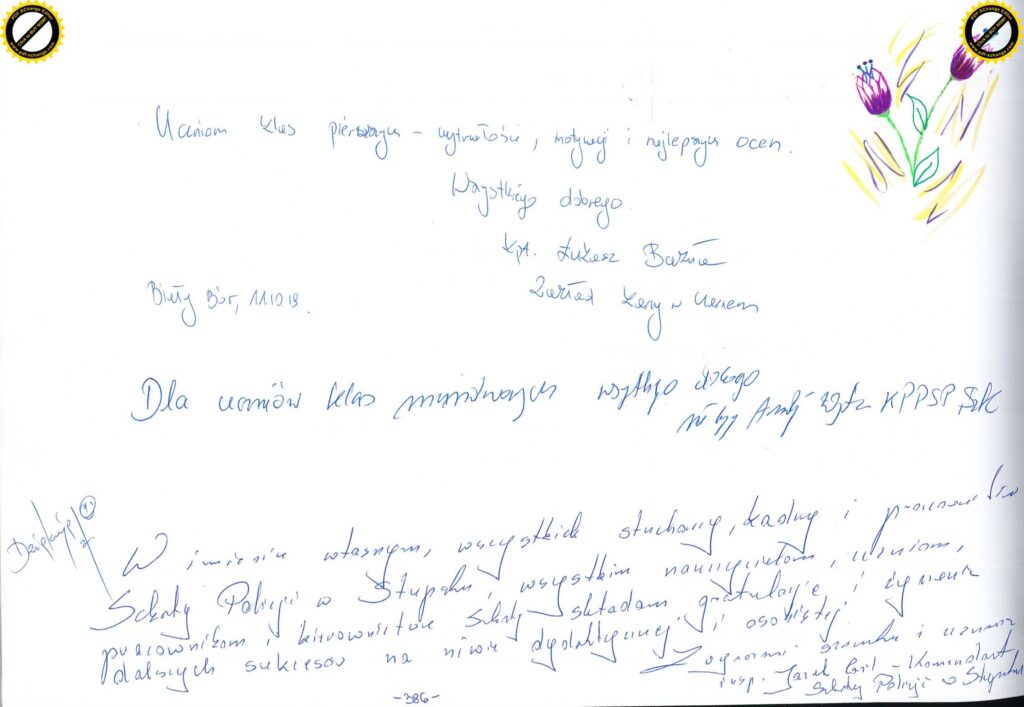 Uczniom klas pierwszych – wytrwałości, motywacji i najlepszych ocen.
Wszystkiego dobrego
kpt. Łukasz
Zakład Karny w Czarnem
Biały Bór, 11.10.19.
Dla uczniów klas mundurowych dobrego
KPPSP
Dziękuję!
W imieniu własnym, wszystkich słuchaczy, kadry i pracowników
Szkoły Policji w Słupsku, wszystkim nauczycielom, uczniom,
pracownikom i kierownictwu szkoły składam gratulacje i życzenia
dalszych sukcesów na niwie dydaktycznej i osobistej.
Z wyrazami szacunku i uznania
insp. Jacek – Komendant
Szkoły Policji w Słupsku
-386-